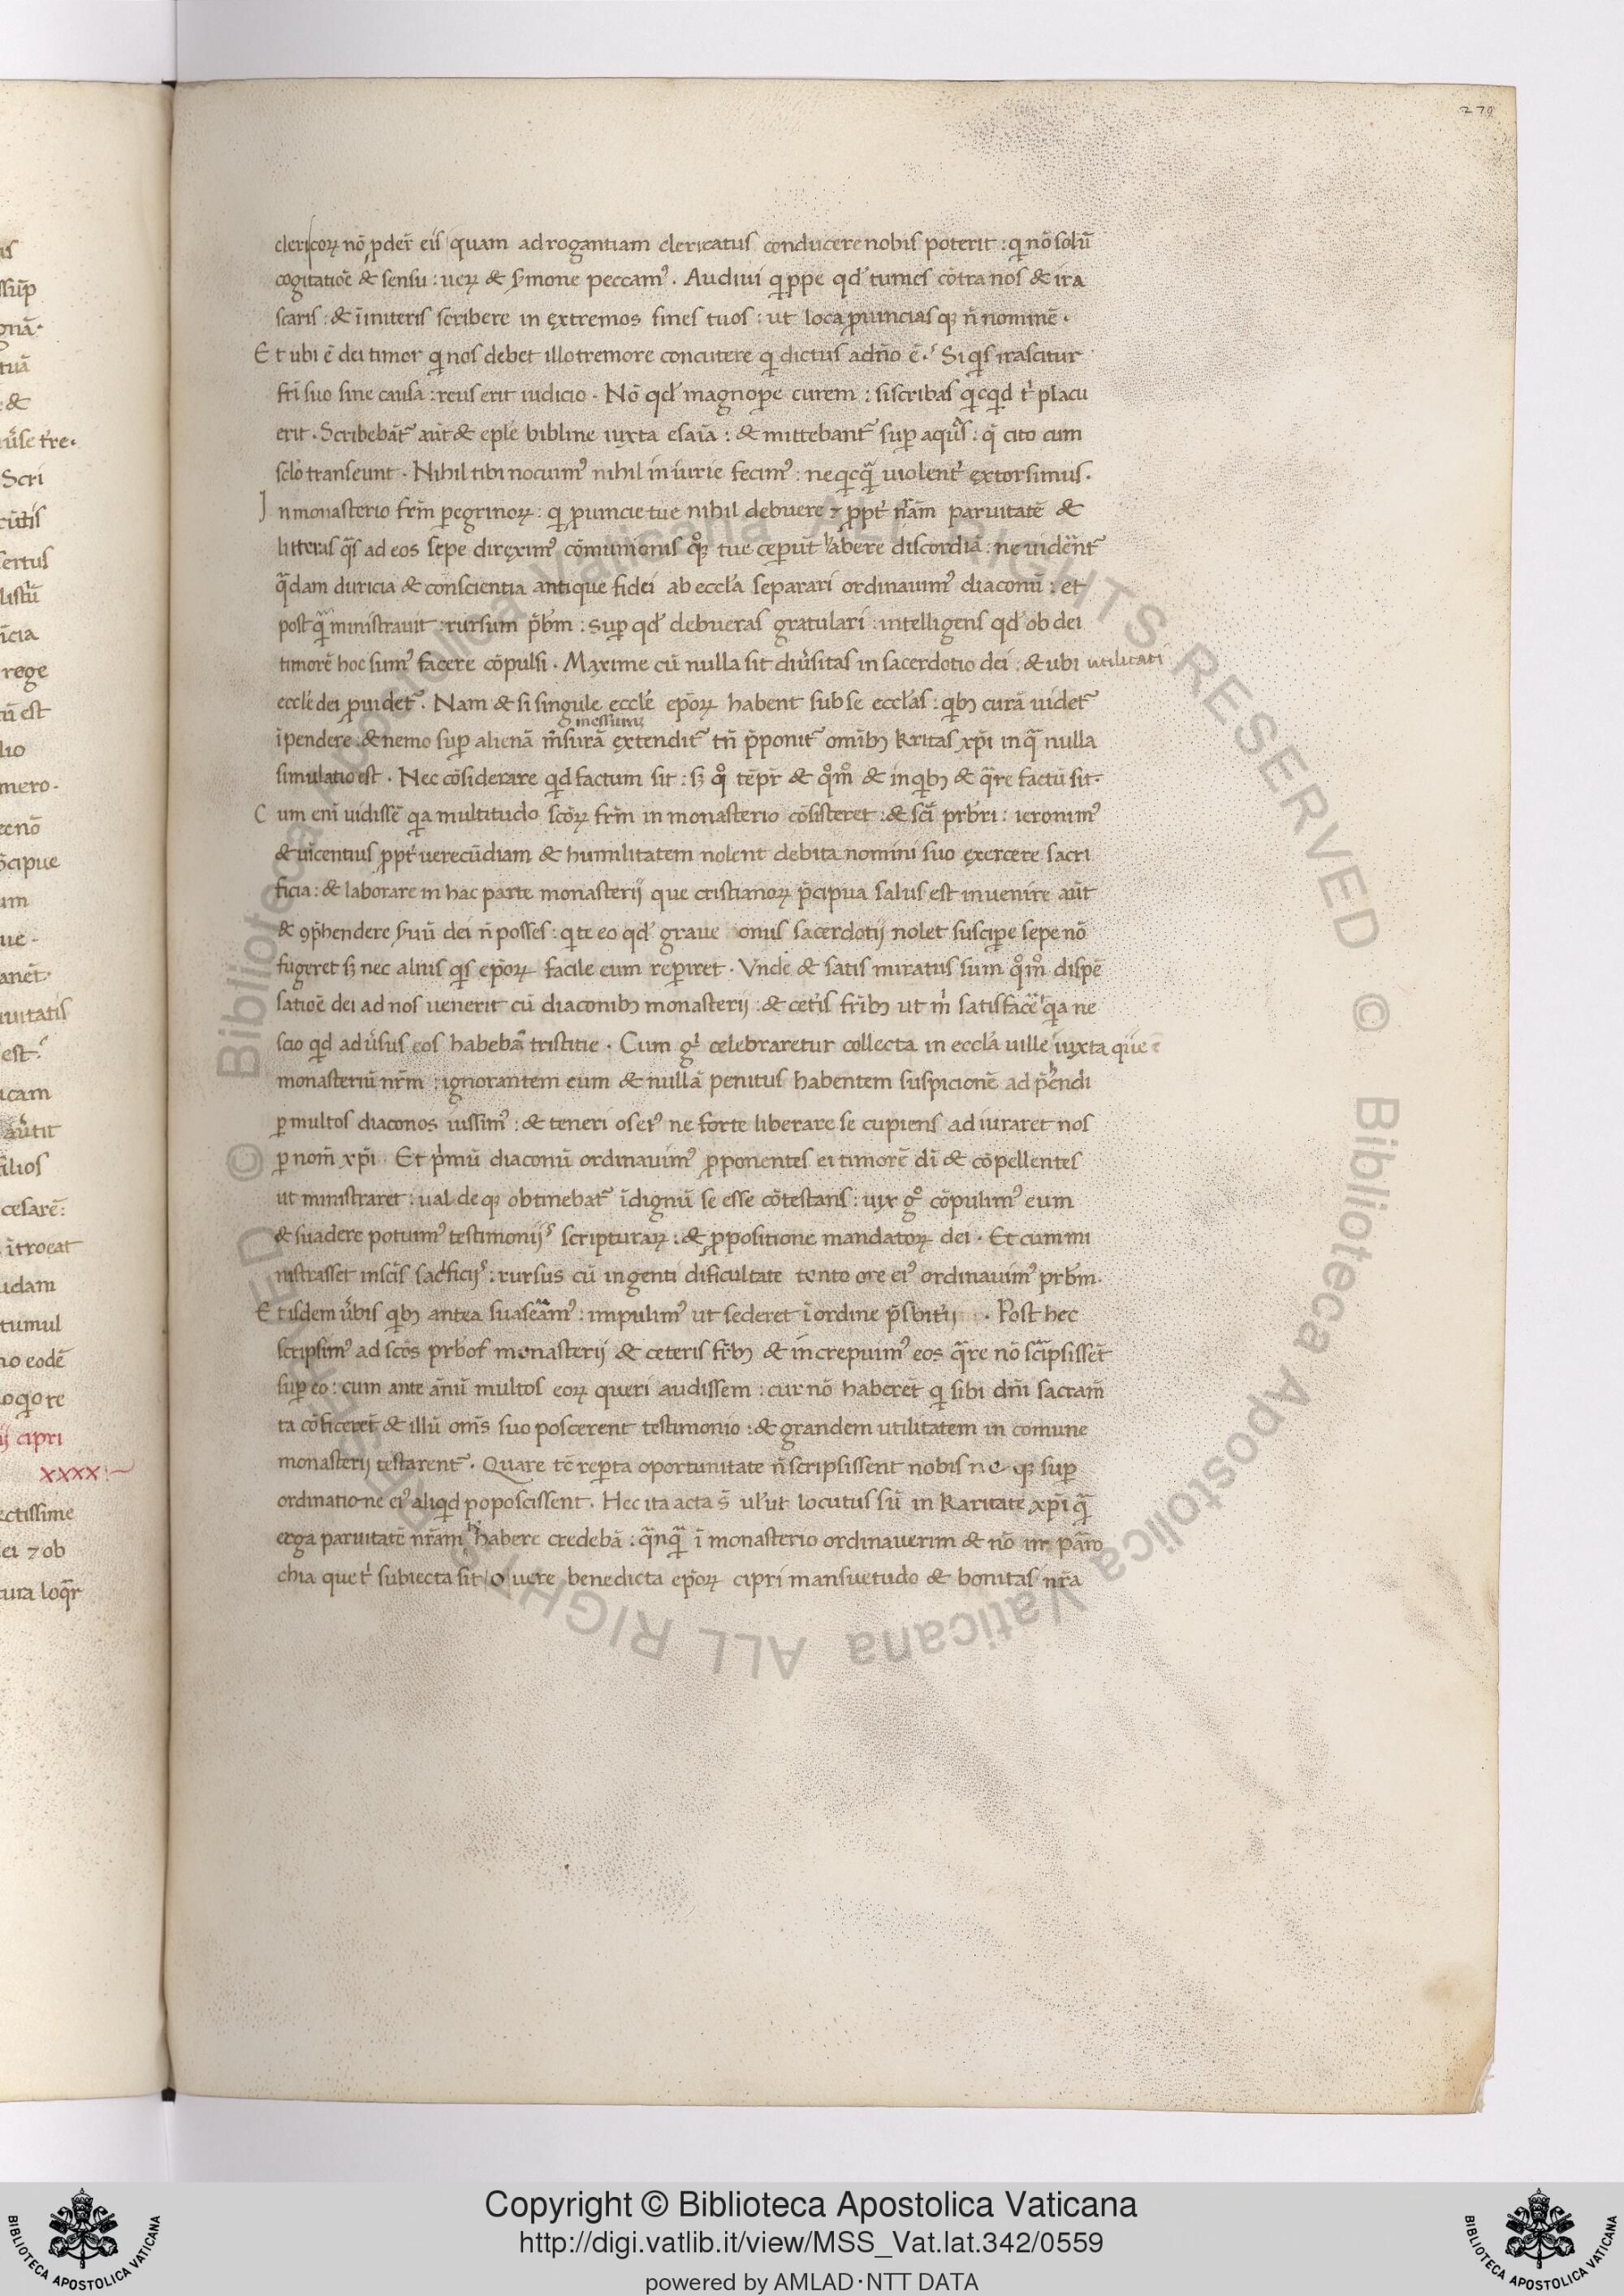 279
clericoꝝ nō ꝓder̄ eis quam adrogantiam clericatus conducere nobis poterit : qi nō solū
cogitatiōe & sensu : ueꝝ & s̓mone peccam᾽. Audiui qippe qd̓ tumes cōtra nos & ira
scaris : & īmiteris scribere in extremos fines tuos : ut loca ꝓuincias qꝫ n̄ nominē .
Et ubi ē dei timor qi nos debet illo tremore concutere qi dictus a dn̄o ē. Si qis irascitur
fri̅ suo sine causa : reus erit iudicio . Nō qd̓ magnoꝑe curem : si scribas qicqid t̓ placu
erit . Scribebāt̉ aūt & eple bibline iuxta esaiā : & mittebant̉ suꝑ aqis : qe cito cum
sclo̓ transeunt . Nihil tibi nocuim᾽ nihil in iurie fecim᾽ : neqicqā uiolent̓ extorsimus .
In monasterio frm̄ ꝑegrinoꝝ : qi ꝓuincie tue nihil debuere ⁊ ꝓpt̓ nr̄am paruitatē &
litteras qas ad eos sepe direxim᾽ cōmunionis qoqꝫ tue ceperūt habere discordiā : ne uiderent̉
qadam duricia & conscientia antique fidei ab eccl̓a separari ordinauim᾽ diaconū : et
postqam ministrauit : rursum p̄brm : suꝑ qd̓ debueras gratulari : intelligens qd̓ ob dei
timorē hoc sum᾽ facere cōpulsi . Maxime cū nulla sit diu̓sitas in sacerdotio dei : & ubi utilitati
eccle̓ dei ꝓuidet̉ . Nam & si singule eccle̓ ep̄oꝝ habent sub se eccl̓as : qibꝫ curā uidet̉
īpendere : & nemo suꝑ alienā m̄surā extendit̉ tn̄ p̄ponit̉ omībꝫ karitas xp̄i in qa nulla
simulatio est . Nec cōsiderare qid factum sit : sꝫ qo tēpr̄ & qom̊ & in qibꝫ & qare factū sit .
Cum eni̅ uidissē qia multitudo scōꝝ frm̄ in monasterio cōsisteret : & sc̄i pr̄bri : ieronim᾽
& uicentius ꝓpt̓ uerecūdiam & humilitatem nolent debita nomini suo exercere sacri
ficia : & laborare in hac parte monasterij que cristianoꝝ p̄cipua salus est inuenire aūt
& ꝯp̄hendere s̓uū dei n̄ posses : qi te eo qd̓ graue onus sacerdotij nolet susciꝑe sepe nō
fugeret sꝫ nec alius qis ep̄oꝝ facile eum reꝑiret . Vnde & satis miratus sum qom̊ dispē
satiōe dei ad nos uenerit cū diaconibꝫ monasterij : & cet̓is fribꝫ ut m̓ satisfacē qia ne
scio qid adu̓sus eos habebam tristitie . Cum go celebraretur collecta in eccl̓a uille iuxta que ē
monasteriū nrm̄ : ignorantem eum & nullā penitus habentem suspicionē adp̄hendi
ꝑ multos diaconos iussim᾽ : & teneri os ei᾽ ne forte liberare se cupiens adiuraret nos
ꝑ nom̄ xp̄i . Et p̓mū diaconū ordinauim᾽ ꝓponentes ei timorē di̅ & cōpellentes
ut ministraret : ual de qꝫ obtinebat̉ īdignū se esse cōtestans : uix go cōpulim᾽ eum
& suadere potuim᾽ testimonijs scripturaꝝ : & ꝓpositione mandatoꝝ dei . Et cum mi
nistrasset in scis sac̓ficijs : rursus cū ingenti dificultate tento ore ei᾽ ordinauim᾽ pr̄brm .
Et isdem u̓bis qibꝫ antea suaseram᾽ : impulim᾽ ut sederet ī ordine p̄sbiterij . Post hec
scripsim᾽ ad scōs pr̄bos monasterij & ceteris fribꝫ & increpuim᾽ eos qare nō scripsissēt
suꝑ eo : cum ante anū multos eoꝝ queri audissem : cur nō haberēt qi sibi dn̄i sacram̄
ta cōficeret & illū oms̄ suo poscerent testimonio : & grandem utilitatem in comune
monasterij testarent̉ . Quare tc̄ reꝑta oportunitate n̄ scripsissent nobis ne qꝫ suꝑ
ordinatione ei᾽ aliqid poposcissent . Hec ita acta s̄ ul᾽ut locutus sū in karitate xp̄i qa
erga paruitatē nr̄am habere credebā : qanqa ī monasterio ordinauerim & nō in paro
chia que t̓ subiecta sit o uere benedicta ep̄oꝝ cipri mansuetudo & bonitas nr̄a
Copyright © Biblioteca Apostolica Vaticana
http://digi.vatlib.it/view/MSS_Vat.lat.342/0559
powered by AMLAD·NTT DATA